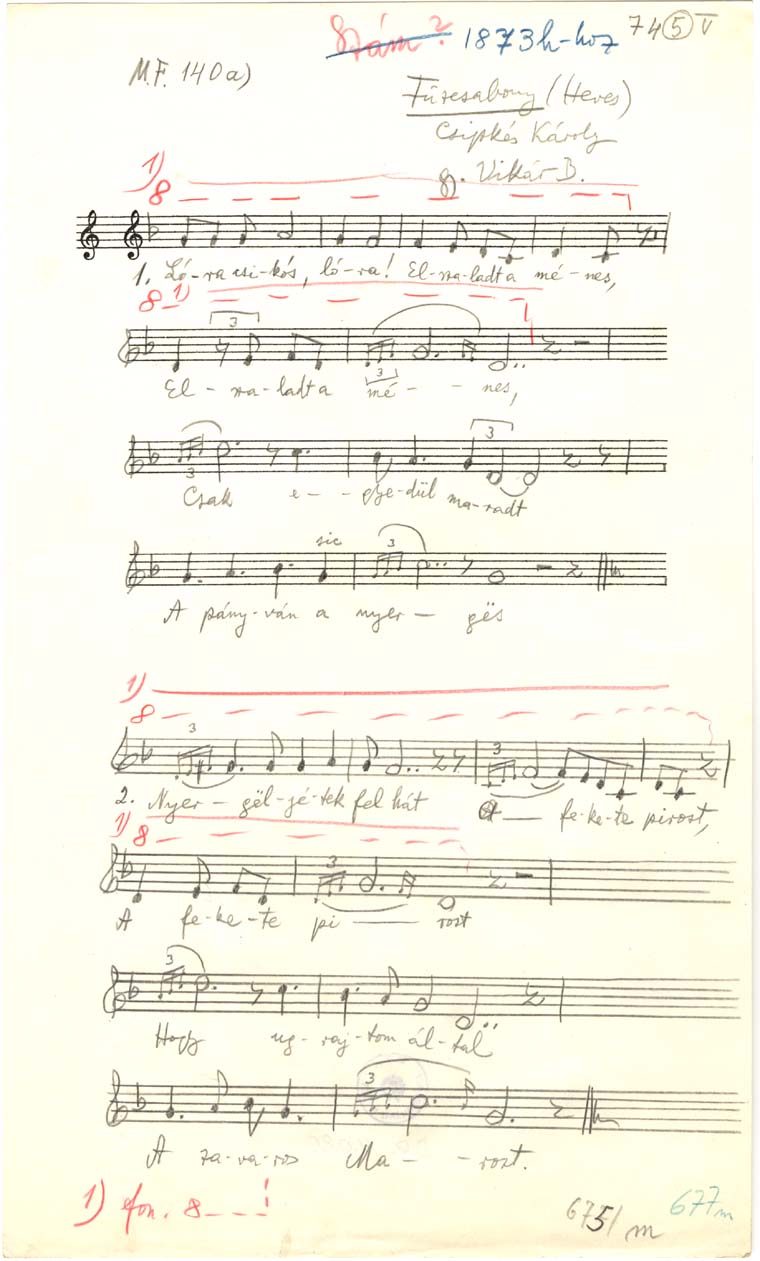 Szám? 1873h-hoz 74 5 V
M.F. 140a)
Füzesabony (Heves)
Csipkés Károly
gy. Vikár B.
1)
8
1. Ló-ra csi-kós, ló-ra! El-sza-ladt a mé-nes,
8 1)
3
El-sza-ladt a mé-nes,
3
3
Csak e-gye-dül ma-radt
3
sic
3
A pány-ván a nyer-gës
1)
8
3
3
2. Nyer-gël-jé-tek fel hát A fe-ke-te pirost,
1) 8
3
A fe-ke-te pi-rost
3
Hogy ug-raj-tom ál-tal
3
A za-va-ros Ma-rost.
1) fon. 8
675/m
677m